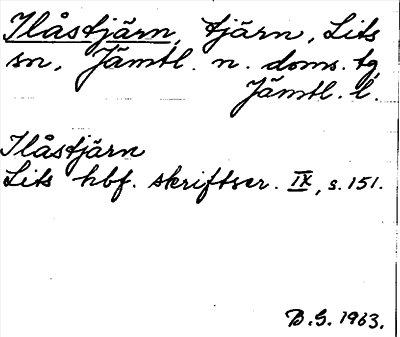 Ilåstjärn, tjärn, Lits
sn, Jämtl. n. doms. tg,
Jämtl. l.
Ilåstjärn
Lits hbf. skriftser. IX, s. 151.
B.G. 1963.